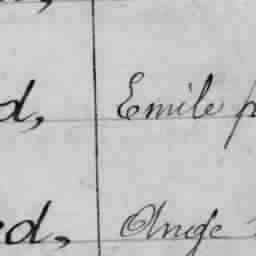 d, Emile p
ed, Ange